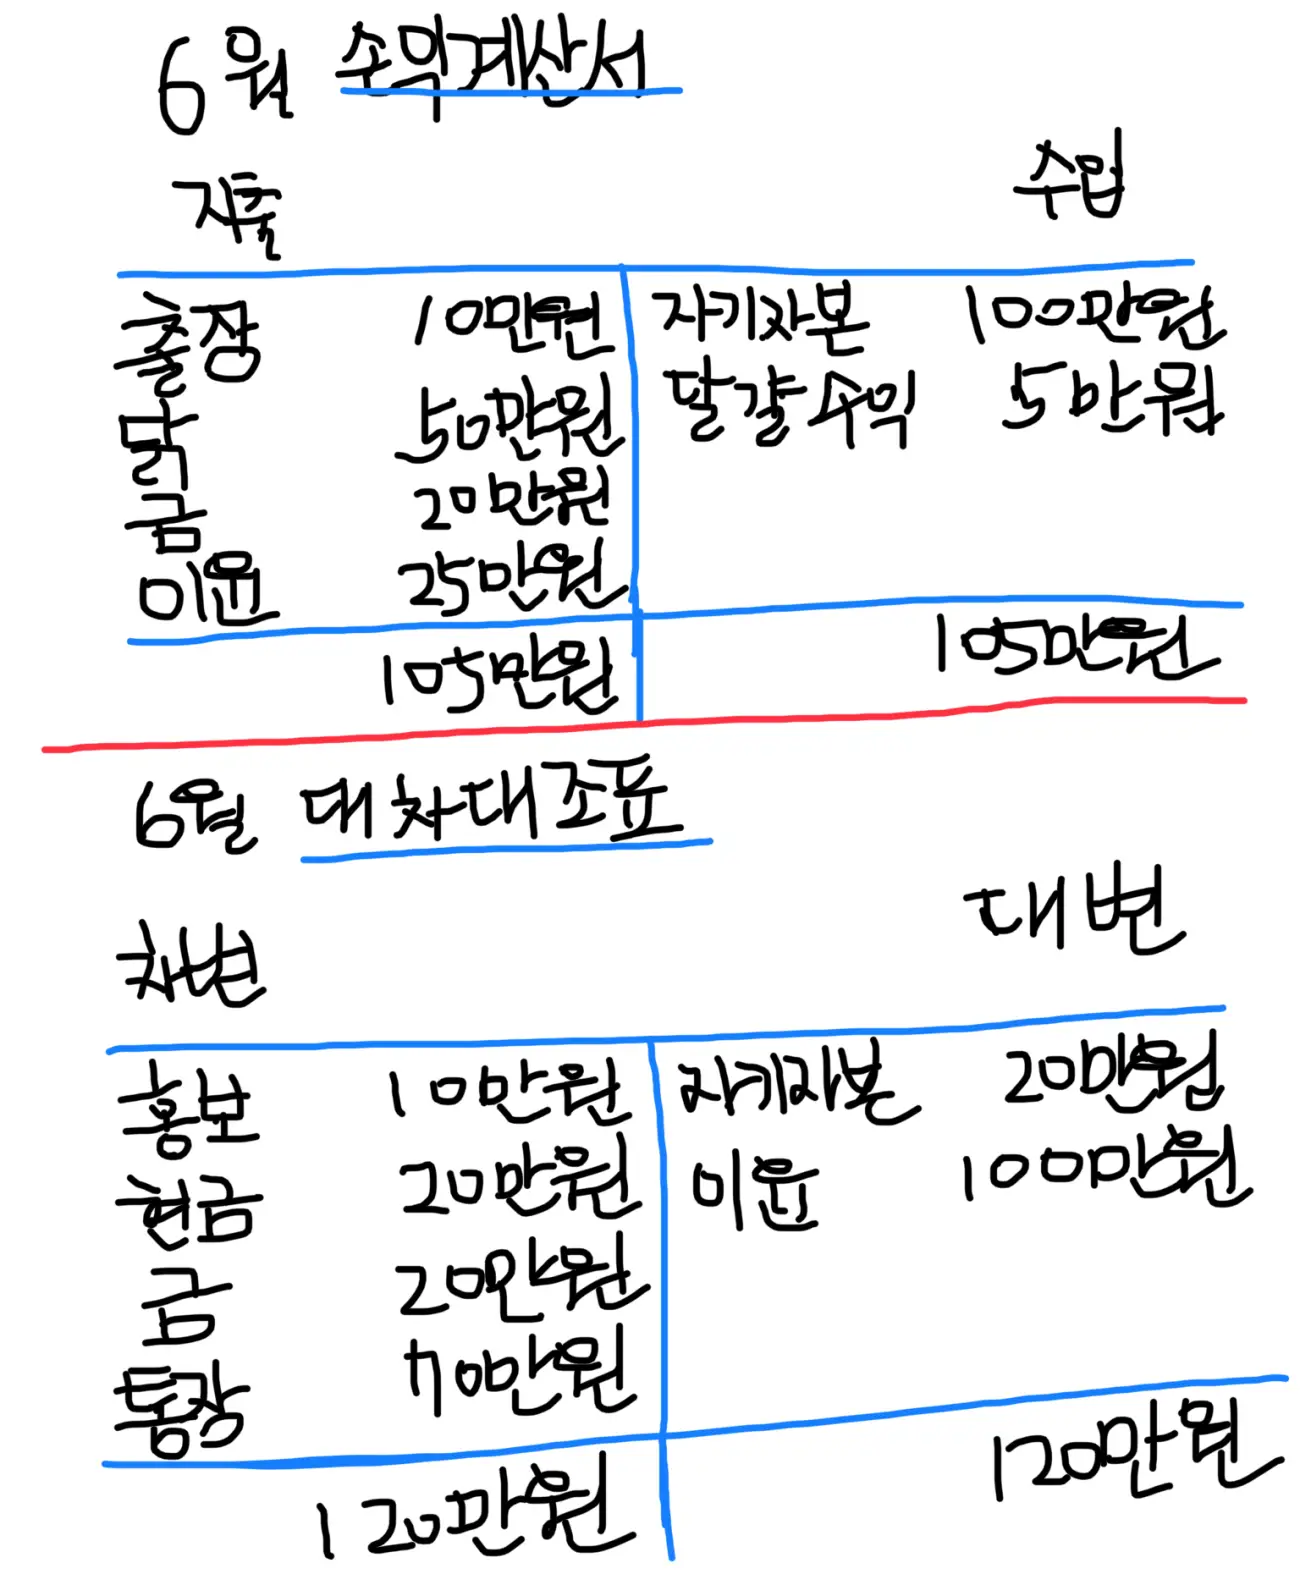 6월 손익계산서
지출 수입
출장 10만원 자기자본 100만원
닭 50만원 달걀수익 5만원
금 20만원
이윤 25만원
105만원 105만원
6월 대차대조표
차변 대변
홍보 10만원 자기자본 20만원
현금 20만원 이윤 100만원
금 20만원
통장 70만원
120만원 120만원